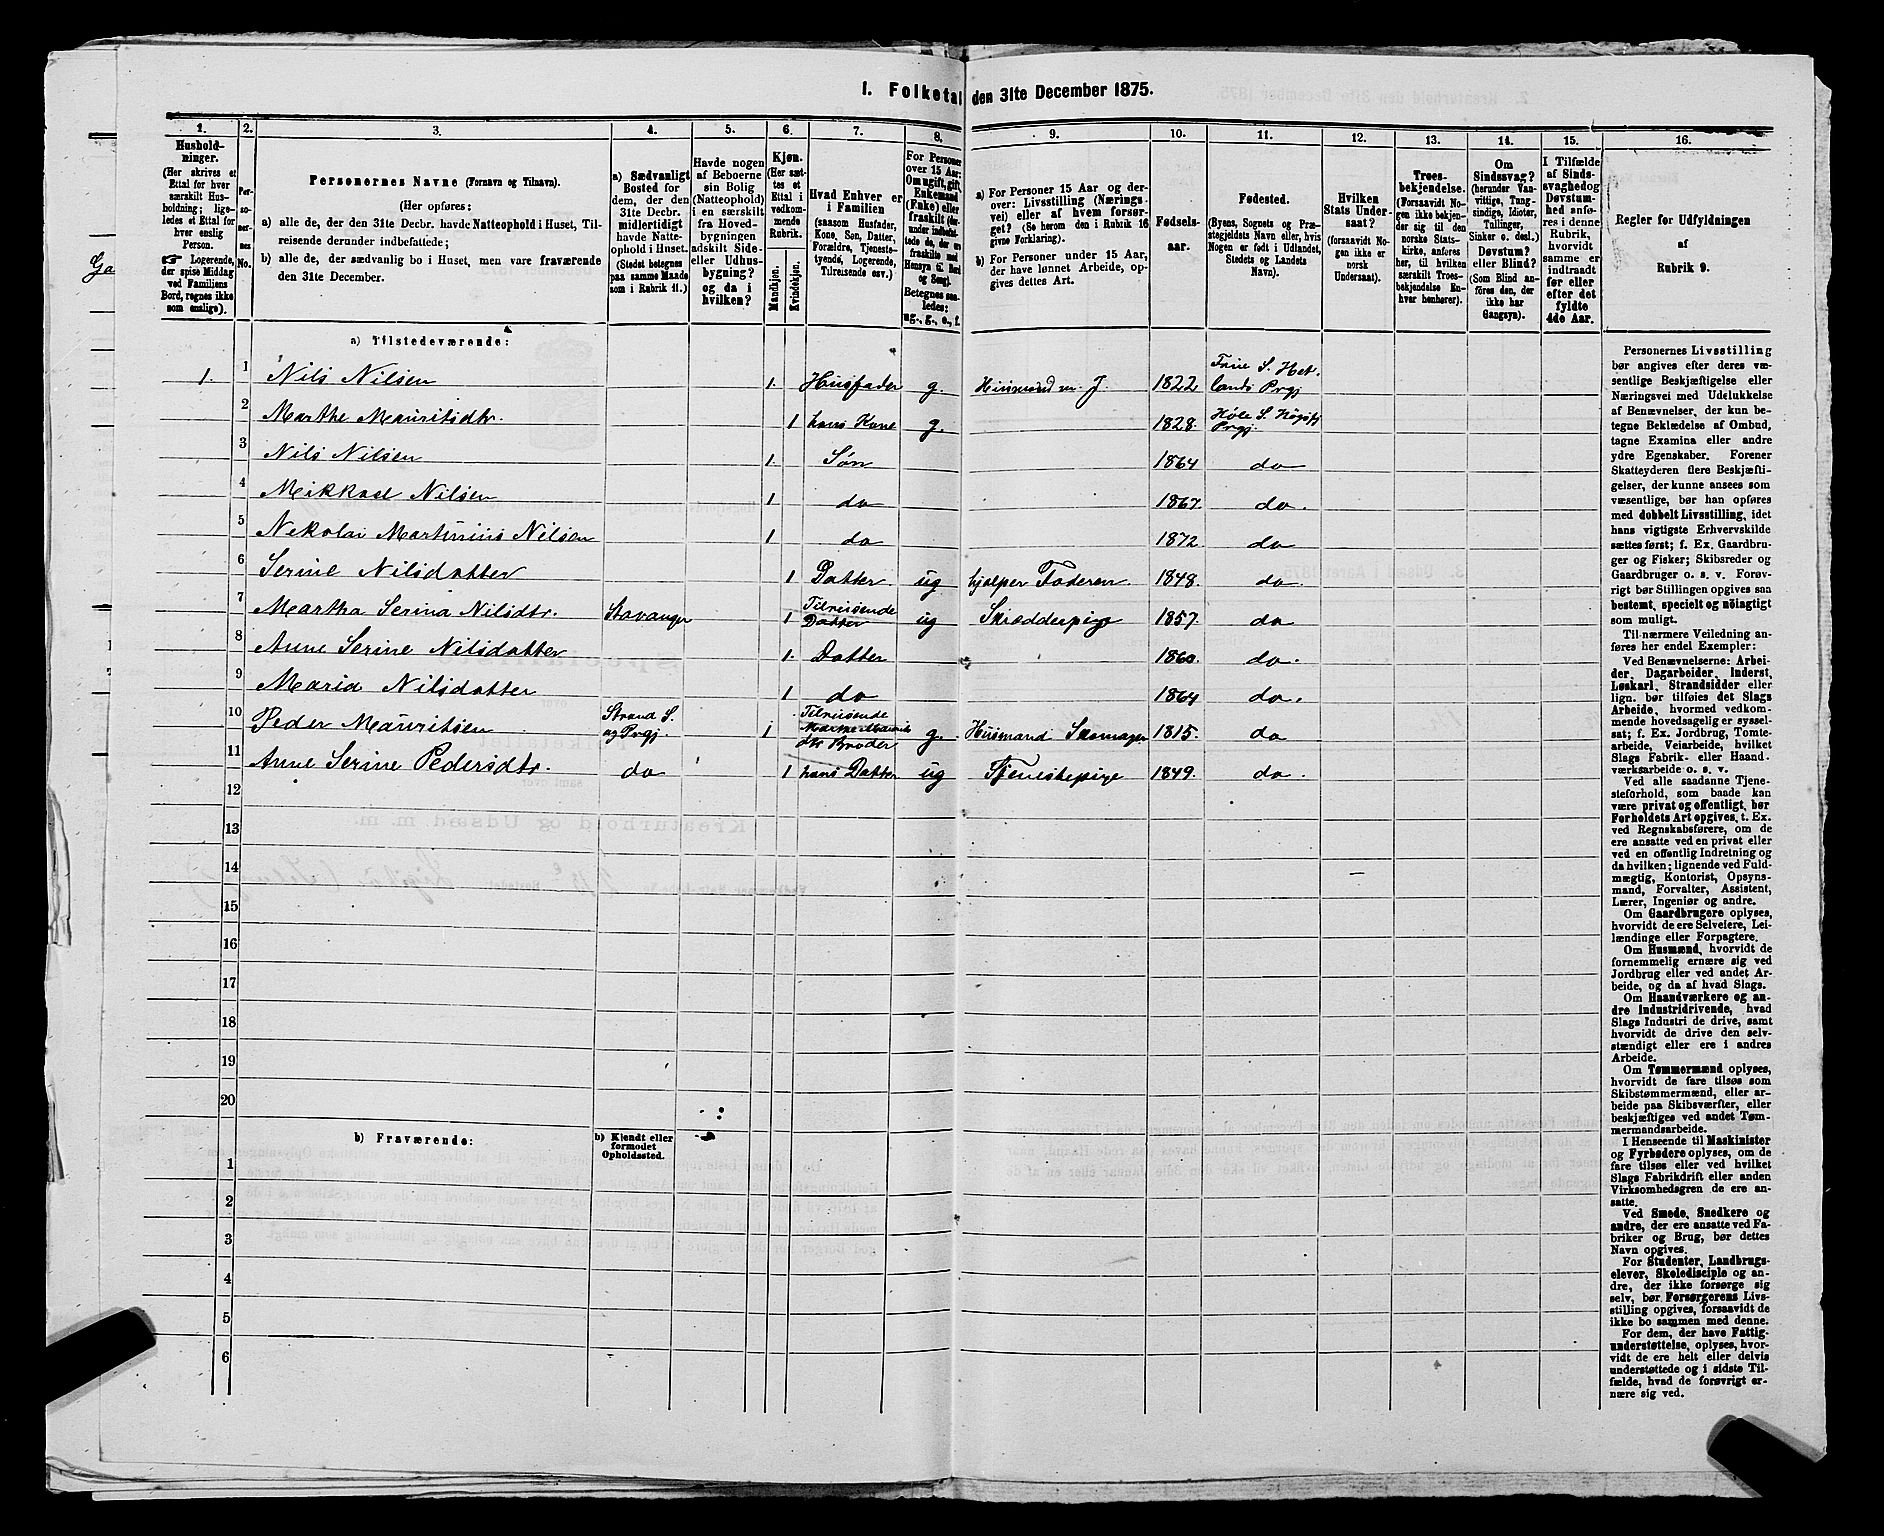 1. Folketal den 31te December 1875.
1.
2.
3.
4.
5.
6.
7.
8.
9.
10.
11.
12.
13.
14.
15.
16.
Hushold-
ninger.
(Her skrives et
Ettal for hver
særskilt Hus-
holdning; lige-
ledes et Ettal for
hver enslig
Person.
☞ Logerende,
der spise Middag
ved Familiens
Bord, regnes ikke
som enslige).
Per-
so-
ner-
nes
No.
Personernes Navne (Fornavn og Tilnavn).
(Her opføres:
a) alle de, der den 31te Decbr. havde Natteophold i Huset, Til-
reisende derunder indbefattede;
b) alle de, der sædvanlig bo i Huset, men vare fraværende
den 31te December.
a) Sædvanligt
Bosted for
dem, der den
31te Decbr.
midlertidigt
havde Natte-
ophold i Huset.
(Stedet betegnes
paa samme Maade
som i Rubrik 11.)
Havde nogen
af Beboerne
sin Bolig
(Natteophold)
i en særskilt
fra Hoved-
bygningen
adskilt Side-
eller Udhus-
bygning?
og da i
hvilken?
Kjøn.
(Her sæt-
tes et
Ettal i
vedkom-
mende
Rubrik.
Mandkjøn.
Kvindekjøn.
Hvad Enhver er
i Familien
(saasom Husfader,
Kone, Søn, Datter,
Forældre, Tjeneste-
tyende, Logerende,
Tilreisende osv.)
For Personer
over 15 Aar:
Om ugift, gift,
Enkemand
(Enke) eller
fraskilt
Betegnes saa-
ledes:
ug., g., e., f.
a) For Personer 15 Aar og der-
over: Livsstilling (Nærings-
vei) eller af hvem forsør-
get? (Se herom den i Rubrik 16
givne Forklaring).
b) For Personer under 15 Aar,
der have lønnet Arbeide, op-
gives dettes Art.
Fødsels-
aar.
Fødested.
(Byens, Sognets og Præ-
stegjeldets Navn eller, hvis
Nogen er født i Udlandet,
Stedets og Landets
Navn).
Hvilken
Stats Under-
saat?
(forsaavidt No-
gen ikke er
norsk
Undersaat).
Troes-
bekjendelse.
(Forsaavidt No-
gen ikke bekjen-
der sig til den
norske Stats-
kirke, anføres
her, til hvilken
særskilt Troes-
bekjendelse En-
hver henhører).
Om
Sindssvag?
(herunder Van-
vittige, Tung-
sindige, Idioter,
Tullinger,
Sinker o. desl.)
Døvstum?
eller Blind?
(Som Blind an-
føres den, der
ikke har
Gangsyn).
I Tilfælde
af Sinds-
svaghed og
Døvstum-
hed anfø-
res i denne
Rubrik,
hvorvidt
samme er
indtraadt
før eller
efter det
fyldte
4de Aar.
Regler for Udfyldningen
af
Rubrik 9.
a) Tilstedeværende:
1. 1 Nils Nilsen 1. Husfader g. Husmand m. J. 1822 Frue S. Het-
lands Prgj
2 Marthe Mauritsdtr. 1 hans Kone g. 1828. Høle S. Høgsfj
Prgj.
3 Nils Nilsen 1. Søn 1864 do
4 Mikkal Nilsen 1 do 1867. do.
5 Nekolai Martinius Nilsen 1 do 1872 do
6 Serine Nilsdatter 1 Datter ug hjælper Faderen 1848. do
7 Martha Serina Nilsdtr. Stavanger 1 Tilreisende
Datter ug Skrædderpige 1857. do
8 Anne Serine Nilsdatter 1. Datter 1860. do.
9 Maria Nilsdatter 1 do 1864 do.
10 Peder Mauritsen Strand S.
og Prgj 1 Tilreisende
Marthe Maurits
dtr Broder g. Husmand Skomager 1815. do
11 Anne Serine Pedersdtr. do 1 hans Datter ug Tjenestepige 1849. do.
12
13
14
15
16
17
18
19
20
b) Fraværende:
b) Kjendt eller
formodet
Opholdssted.
1
2
3
4
5
6
Personernes Livsstilling
bør angives efter deres væ-
sentlige Beskjæftigelse eller
Næringsvei med Udelukkelse
af Benævnelser, der kun be-
tegne Beklædelse af Ombud,
tagne Examina eller andre
ydre Egenskaber. Forener
Skatteyderen flere Beskjæfti-
gelser, der kunne ansees som
væsentlige, bør han opføres
med dobbelt Livsstilling, idet
hans vigtigste Erhvervskilde
sættes først; f. Ex. Gaardbru-
ger og Fisker; Skibsreder og
Gaardbruger o. s. v. Forøv-
rigt bør Stillingen opgives saa
bestemt, specielt og nøiagtigt
som muligt.
Til nærmere Veiledning an-
føres her endel Exempler:
Ved Benævnelserne: Arbei-
der, Dagarbeider, Inderst,
Løskarl, Strandsidder eller
lign. bør tilføies det Slags
Arbeide, hvormed vedkom-
mende hovedsagelig er syssel-
sat; f. Ex. Jordbrug, Tomte-
arbeide, Veiarbeide, hvilket
Slags Fabrik- eller Haand-
værksarbeide o. s. v.
Ved alle saadanne Tjene-
steforhold, som baade kan
være privat og offentligt, bør
Forholdets Art opgives, t. Ex.
ved Regnskabsførere, om de
ere ansatte ved en privat eller
ved en offentlig Indretning og
da hvilken; lignende ved Fuld-
mægtig, Kontorist, Opsyns-
mand, Forvalter, Assistent,
Lærer, Ingeniør og andre.
Om Gaardbrugere oplyses,
hvorvidt de ere Selveiere, Lei-
lændinge eller Forpagtere.
Om Husmænd, hvorvidt de
fornemmelig ernære sig ved
Jordbrug eller ved andet Ar-
beide, og da af hvad Slags.
Om Haandværkere og an-
dre Industridrivende, hvad
Slags Industri de drive, samt
hvorvidt de drive den selv-
stændigt eller ere i andres
Arbeide.
Om Tømmermænd oplyses,
hvorvidt de fare tilsøs som
Skibstømmermænd, eller ar-
beide paa Skibsværfter, eller
beskjæftiges ved andet Tøm-
mermandsarbeide.
I Henseende til Maskinister
og Fyrbødere oplyses, om de
fare tilsøs eller ved hvilket
Slags Fabrikdrift eller anden
Virksomhedsgren de ere an-
satte.
Ved Smede, Snedkere og
andre, der ere ansatte ved Fa-
briker og Brug, bør dettes
Navn opgives.
For Studenter, Landbrugs-
elever, Skoledisciple og an-
dre, der ikke forsørge sig
selv, bør Forsørgerens Livs-
stilling opgives, forsaavidt de
ikke bo sammen med denne.
For dem, der have Fattig-
understøttelse, oplyses, hvor-
vidt de ere helt eller delvis
understøttede og i sidste Til-
fælde, hvad de forøvrigt er-
nære sig ved.